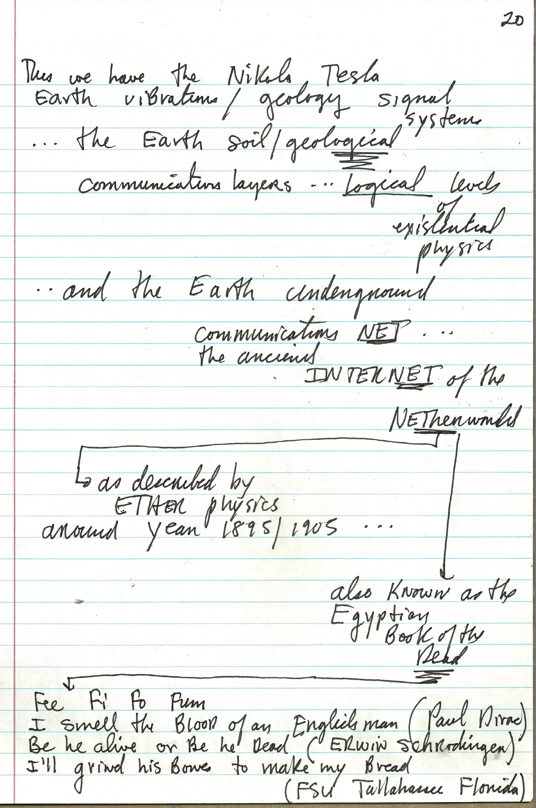 20
Thus we have the Nikola Tesla
Earth vibrations / geology signal
systems
... the Earth soil/geological
communications layers ... logical levels
of
existential
physics
.. and the Earth underground
communications NET ...
the ancient
INTERNET of the
NETherworld
as described by
ETHER physics
around year 1895/1905 ...
also known as the
Egyptian
Book of the
Dead
Fee Fi Fo Fum
I smell the Blood of an Englishman (Paul Dirac)
Be he alive or Be he Dead (ERWIN Schrodinger)
I'll grind his Bones to make my Bread
(FSU Tallahassee Florida)